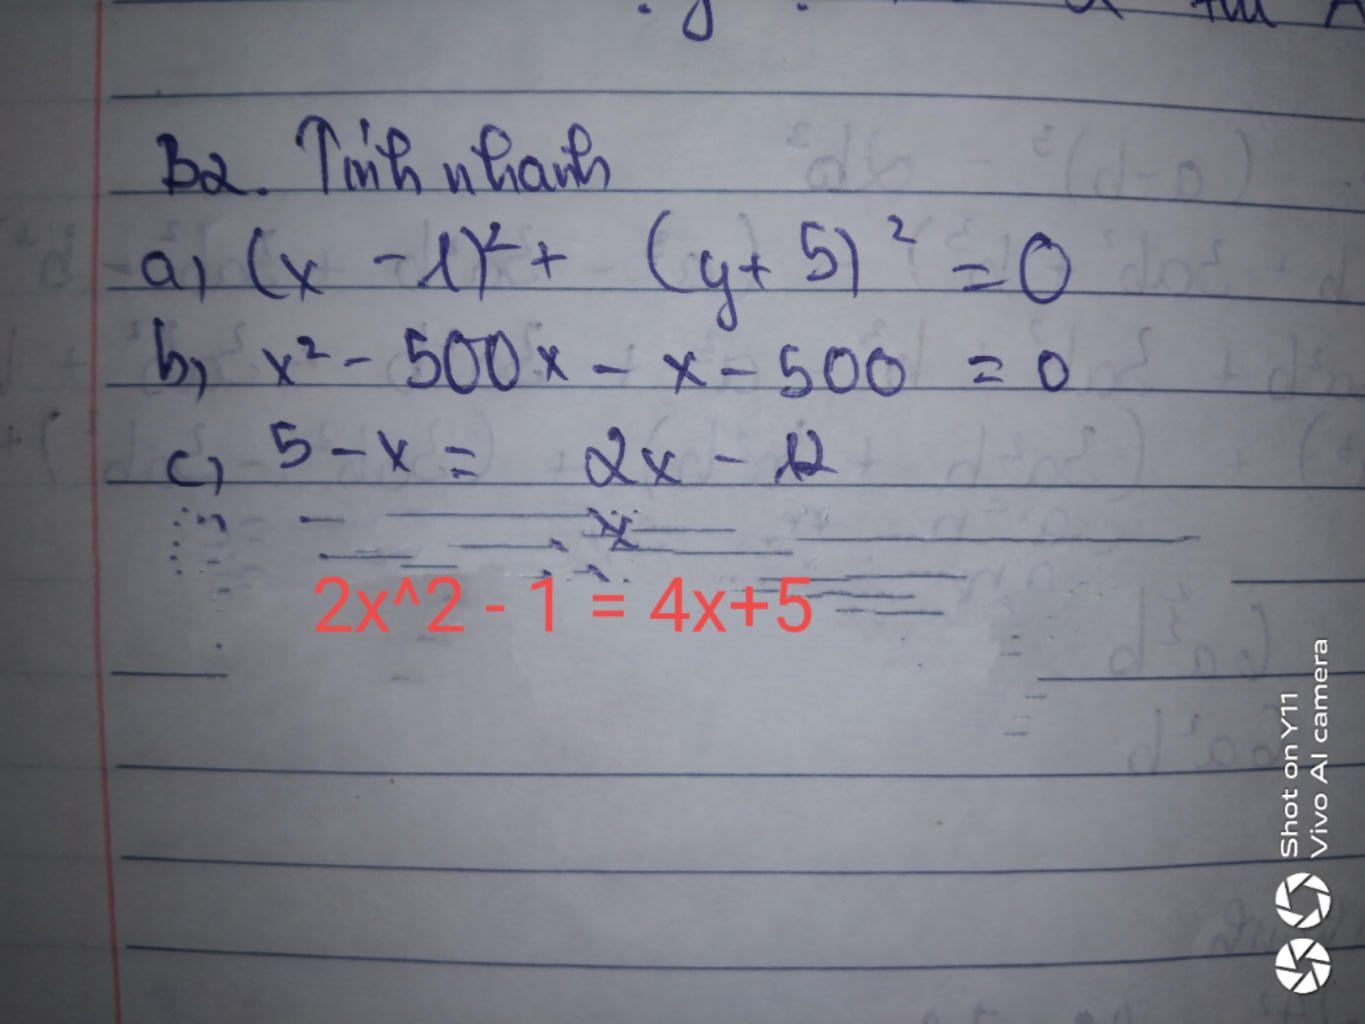 B2. Tính nhanh
a, (x - 1)² + (y + 5)² = 0
b, x² - 500x - x - 500 = 0
c, 5 - x = 2x - 12
2x^2 - 1 = 4x+5
Shot on Y11
Vivo AI camera